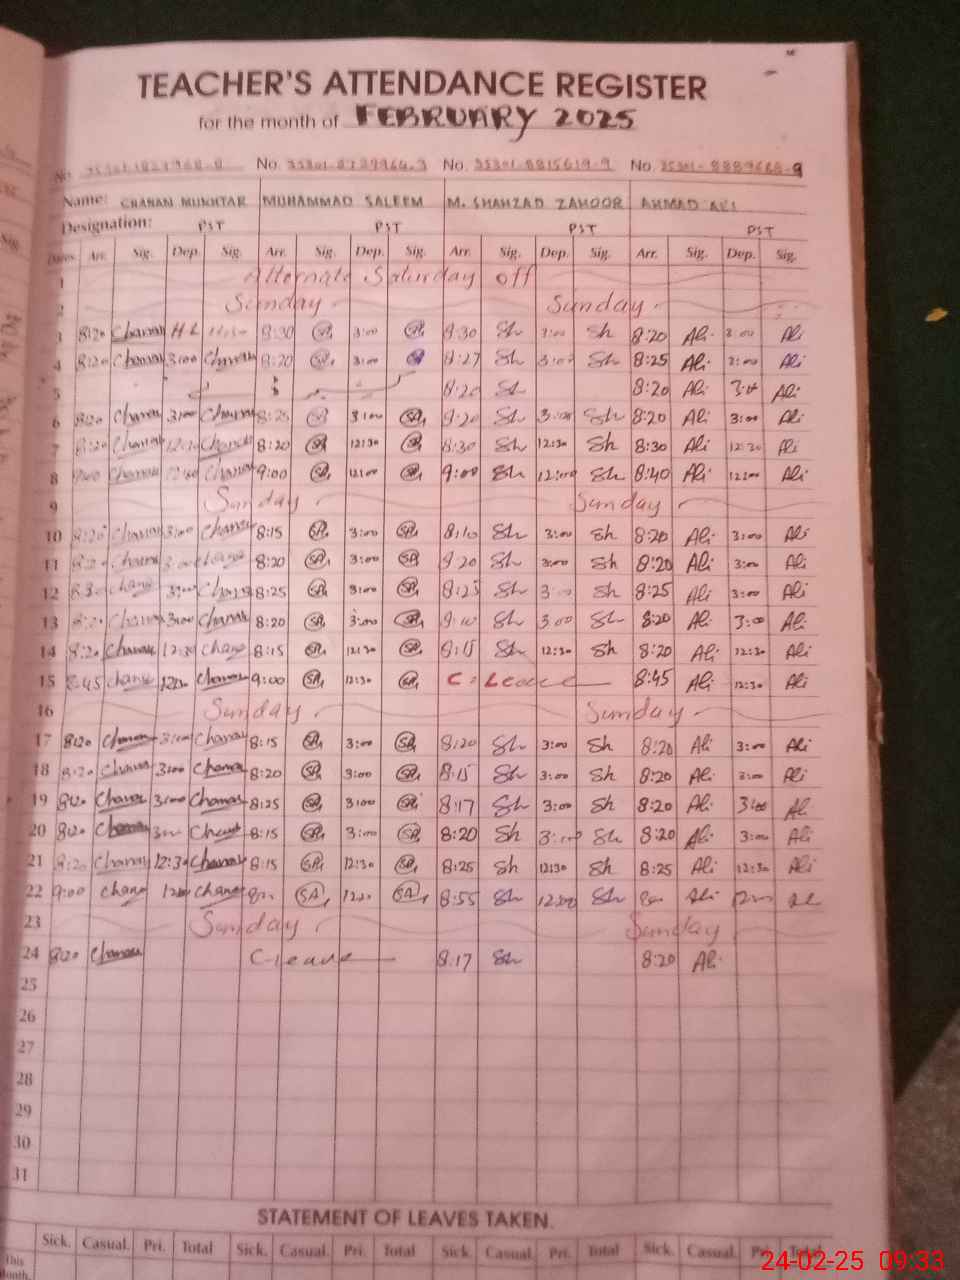 TEACHER'S ATTENDANCE REGISTER
for the month of FEBRUARY 2025
No. No. 35301-8789964-3 No. 35301-8815619-9 No. 35301-8889668-9
Name: CHANAN MUKHTAR MUHAMMAD SALEEM M. SHAHZAD ZAHOOR AHMAD ALI
Designation: PST PST PST PST
Dates Arr. Sig. Dep. Sig. Arr. Sig. Dep. Sig. Arr. Sig. Dep. Sig. Arr. Sig. Dep. Sig.
1 Alternate Saturday off
2 Sunday Sunday
3 8:20 Chanan 8:30 SA 3:00 SA 8:30 Sh 3:00 Sh 8:20 Ali 3:00 Ali
4 8:20 Chanan 3:00 Chanan 8:20 SA 3:00 8:27 Sh 3:00 Sh 8:25 Ali 3:00 Ali
5 8:20 Sh 8:20 Ali 3:00 Ali
6 8:20 Chanan 3:00 Chanan 8:25 SA 3:00 SA 8:20 Sh 3:00 Sh 8:20 Ali 3:00 Ali
7 8:20 Chanan 12:30 Chanan 8:20 SA 12:30 SA 8:30 Sh 12:30 Sh 8:30 Ali 12:30 Ali
8 Chanan Chanan 9:00 SA 12:00 SA 9:00 Sh 12:00 Sh 8:40 Ali 12:00 Ali
9 Sunday Sunday
10 8:20 Chanan 3:00 Chanan 8:15 SA 3:00 SA 8:10 Sh 3:00 Sh 8:20 Ali 3:00 Ali
11 Chanan 3:00 Chanan 8:20 SA 3:00 SA 8:20 Sh 3:00 Sh 8:20 Ali 3:00 Ali
12 Chanan 3:00 Chanan 8:25 SA 3:00 SA 8:25 Sh 3:00 Sh 8:25 Ali 3:00 Ali
13 8:20 Chanan 3:00 Chanan 8:20 SA 3:00 SA Sh 3:00 Sh 8:20 Ali 3:00 Ali
14 8:20 Chanan 12:30 Chanan 8:15 SA 12:30 SA 8:15 Sh 12:30 Sh 8:20 Ali 12:30 Ali
15 8:45 Chanan 12:30 Chanan 9:00 SA 12:30 SA C. Leave 8:45 Ali 12:30 Ali
16 Sunday Sunday
17 8:20 Chanan 3:00 Chanan 8:15 SA 3:00 SA 8:20 Sh 3:00 Sh 8:20 Ali 3:00 Ali
18 8:20 Chanan 3:00 Chanan 8:20 SA 3:00 SA 8:15 Sh 3:00 Sh 8:20 Ali 3:00 Ali
19 8:20 Chanan 3:00 Chanan 8:25 SA 3:00 SA 8:17 Sh 3:00 Sh 8:20 Ali 3:00 Ali
20 8:20 Chanan Chanan 8:15 SA 3:00 SA 8:20 Sh 3:00 Sh 8:20 Ali 3:00 Ali
21 8:20 Chanan 12:30 Chanan 8:15 SA 12:30 SA 8:25 Sh 12:30 Sh 8:25 Ali 12:30 Ali
22 9:00 Chanan Chanan SA SA 8:55 Sh 12:00 Sh Ali
23 Sunday Sunday
24 8:20 Chanan C-leave 8:17 Sh 8:20 Ali
25
26
27
28
29
30
31
STATEMENT OF LEAVES TAKEN.
Sick. Casual. Pri. Total Sick. Casual. Pri. Total Sick. Casual. Pri. Total Sick. Casual. Pri. Total
This
Month.
24-02-25 09:33